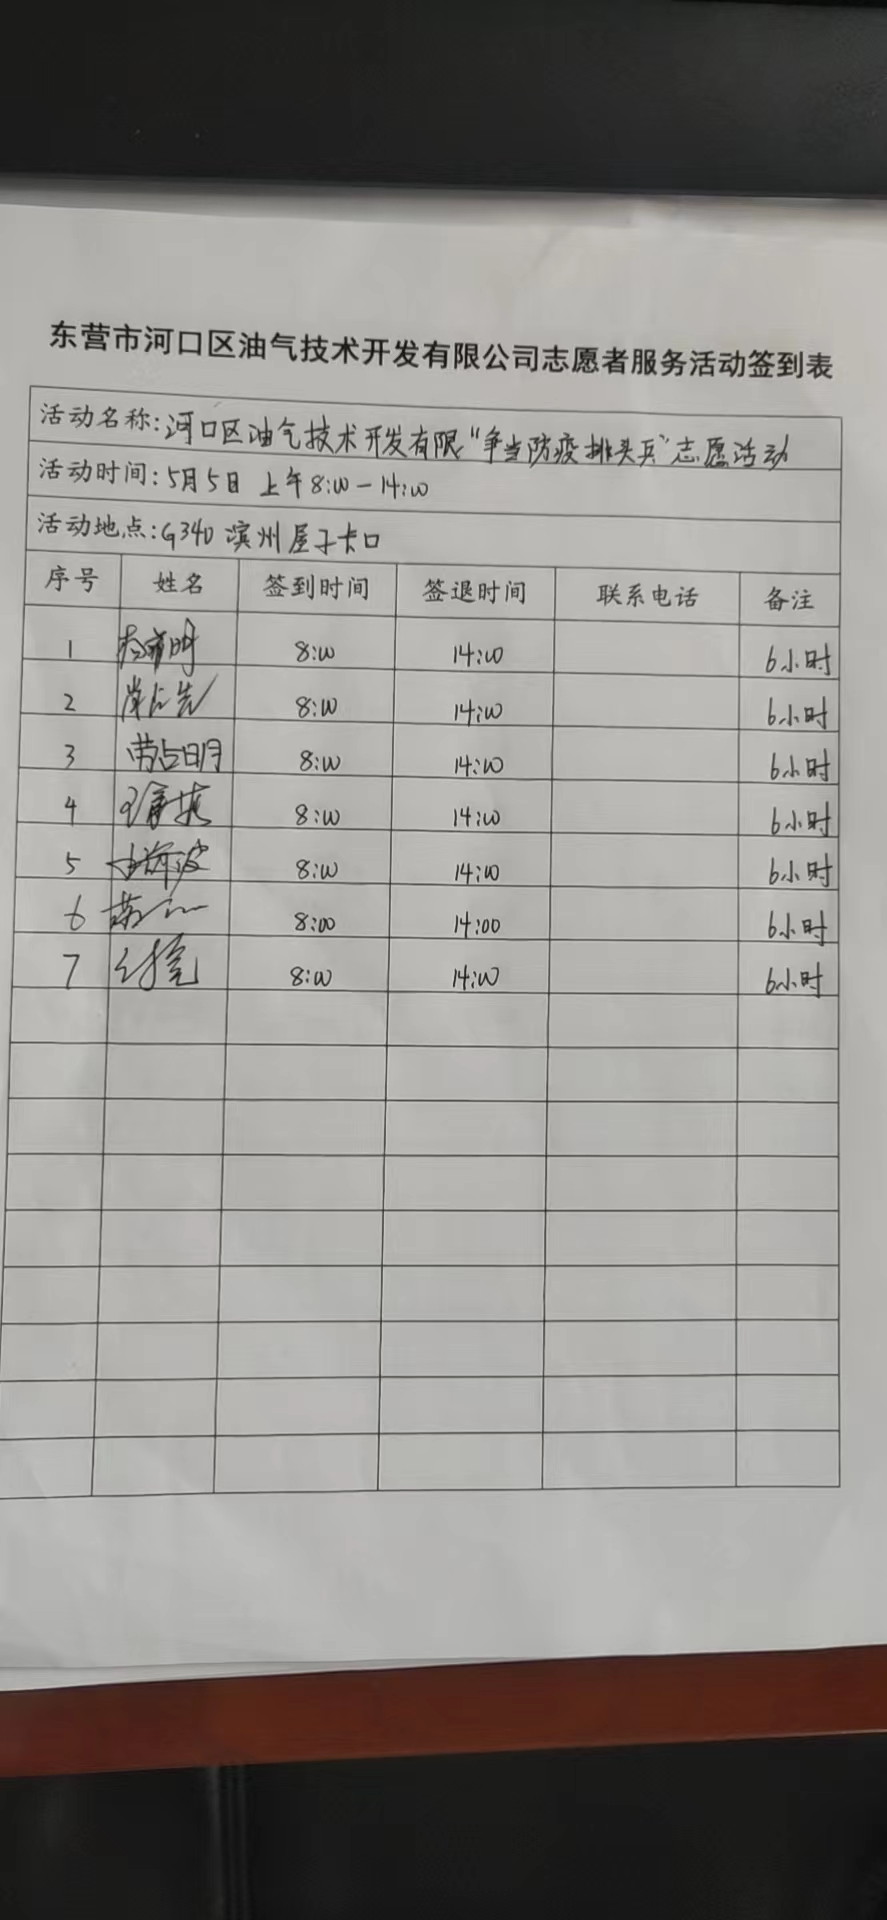 东营市河口区油气技术开发有限公司志愿者服务活动签到表
活动名称:河口区油气技术开发有限“争当防疫排头兵”志愿活动
活动时间:5月5日 上午8:00-14:00
活动地点:G340 滨州屋子卡口
序号 姓名 签到时间 签退时间 联系电话 备注
1 8:00 14:00 6小时
2 8:00 14:00 6小时
3 8:00 14:00 6小时
4 8:00 14:00 6小时
5 8:00 14:00 6小时
6 8:00 14:00 6小时
7 8:00 14:00 6小时